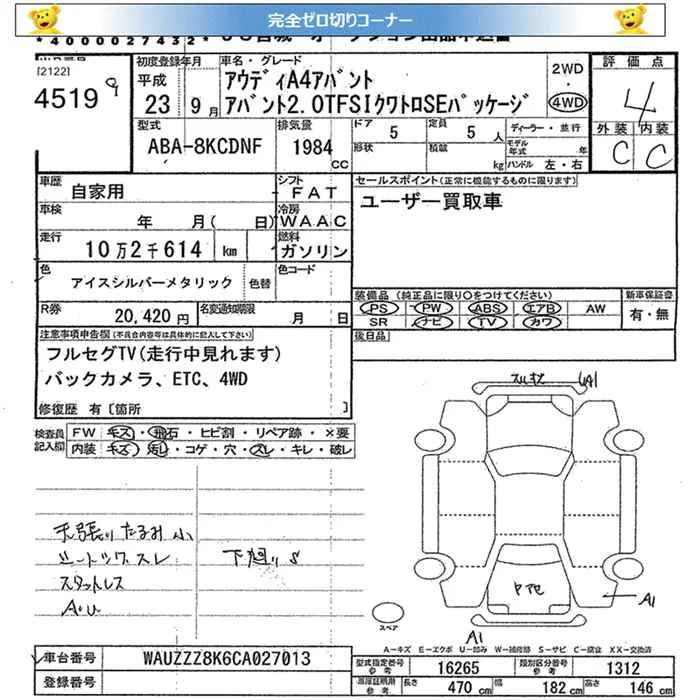 完全ゼロ切りコーナー
*4000027432*
[2122]
4519 9
初度登録年月
平成
23年9月
車名・グレード
アウディA4アバント
アバント2.0TFSIクワトロSEパッケージ
2WD
・
4WD
評価点
4
外装 内装
C C
型式
ABA-8KCDNF
排気量
1984 CC
ドア 5
形状
定員 5 人
積載 kg
ディーラー・並行
モデル年式 年
ハンドル 左・右
車歴 自家用
シフト FAT
車検 年 月( 日)
冷房 WAAC
走行 10万2千614 km
燃料 ガソリン
色 アイスシルバーメタリック 色替
色コード
R券 20,420円
名変通知期限 月 日
セールスポイント(正常に機能するものに限ります)
ユーザー買取車
装備品(純正品に限り○をつけてください)
PS PW ABS エアB AW
SR ナビ TV カワ
新車保証書
有・無
後日品
注意事項申告欄(不具合内容等は具体的に記入して下さい)
フルセグTV(走行中見れます)
バックカメラ、ETC、4WD
修復歴 有〔箇所 〕
検査員記入欄
FW キズ・飛石・ヒビ割・リペア跡・×要
内装 キズ・汚レ・コゲ・穴・スレ・キレ・破レ
天張りたるみ小
シートツヤスレ
スタットレス
A.U
下廻りS
A1
A1
スペア
A-キズ E-エクボ U-凹み W-補修跡 S-サビ C-腐食 XX-交換済
車台番号 WAUZZZ8K6CA027013
登録番号
型式指定番号 参考 16265
類別区分番号 参考 1312
車庫証明用 参考
長さ 470 cm
幅 182 cm
高さ 146 cm